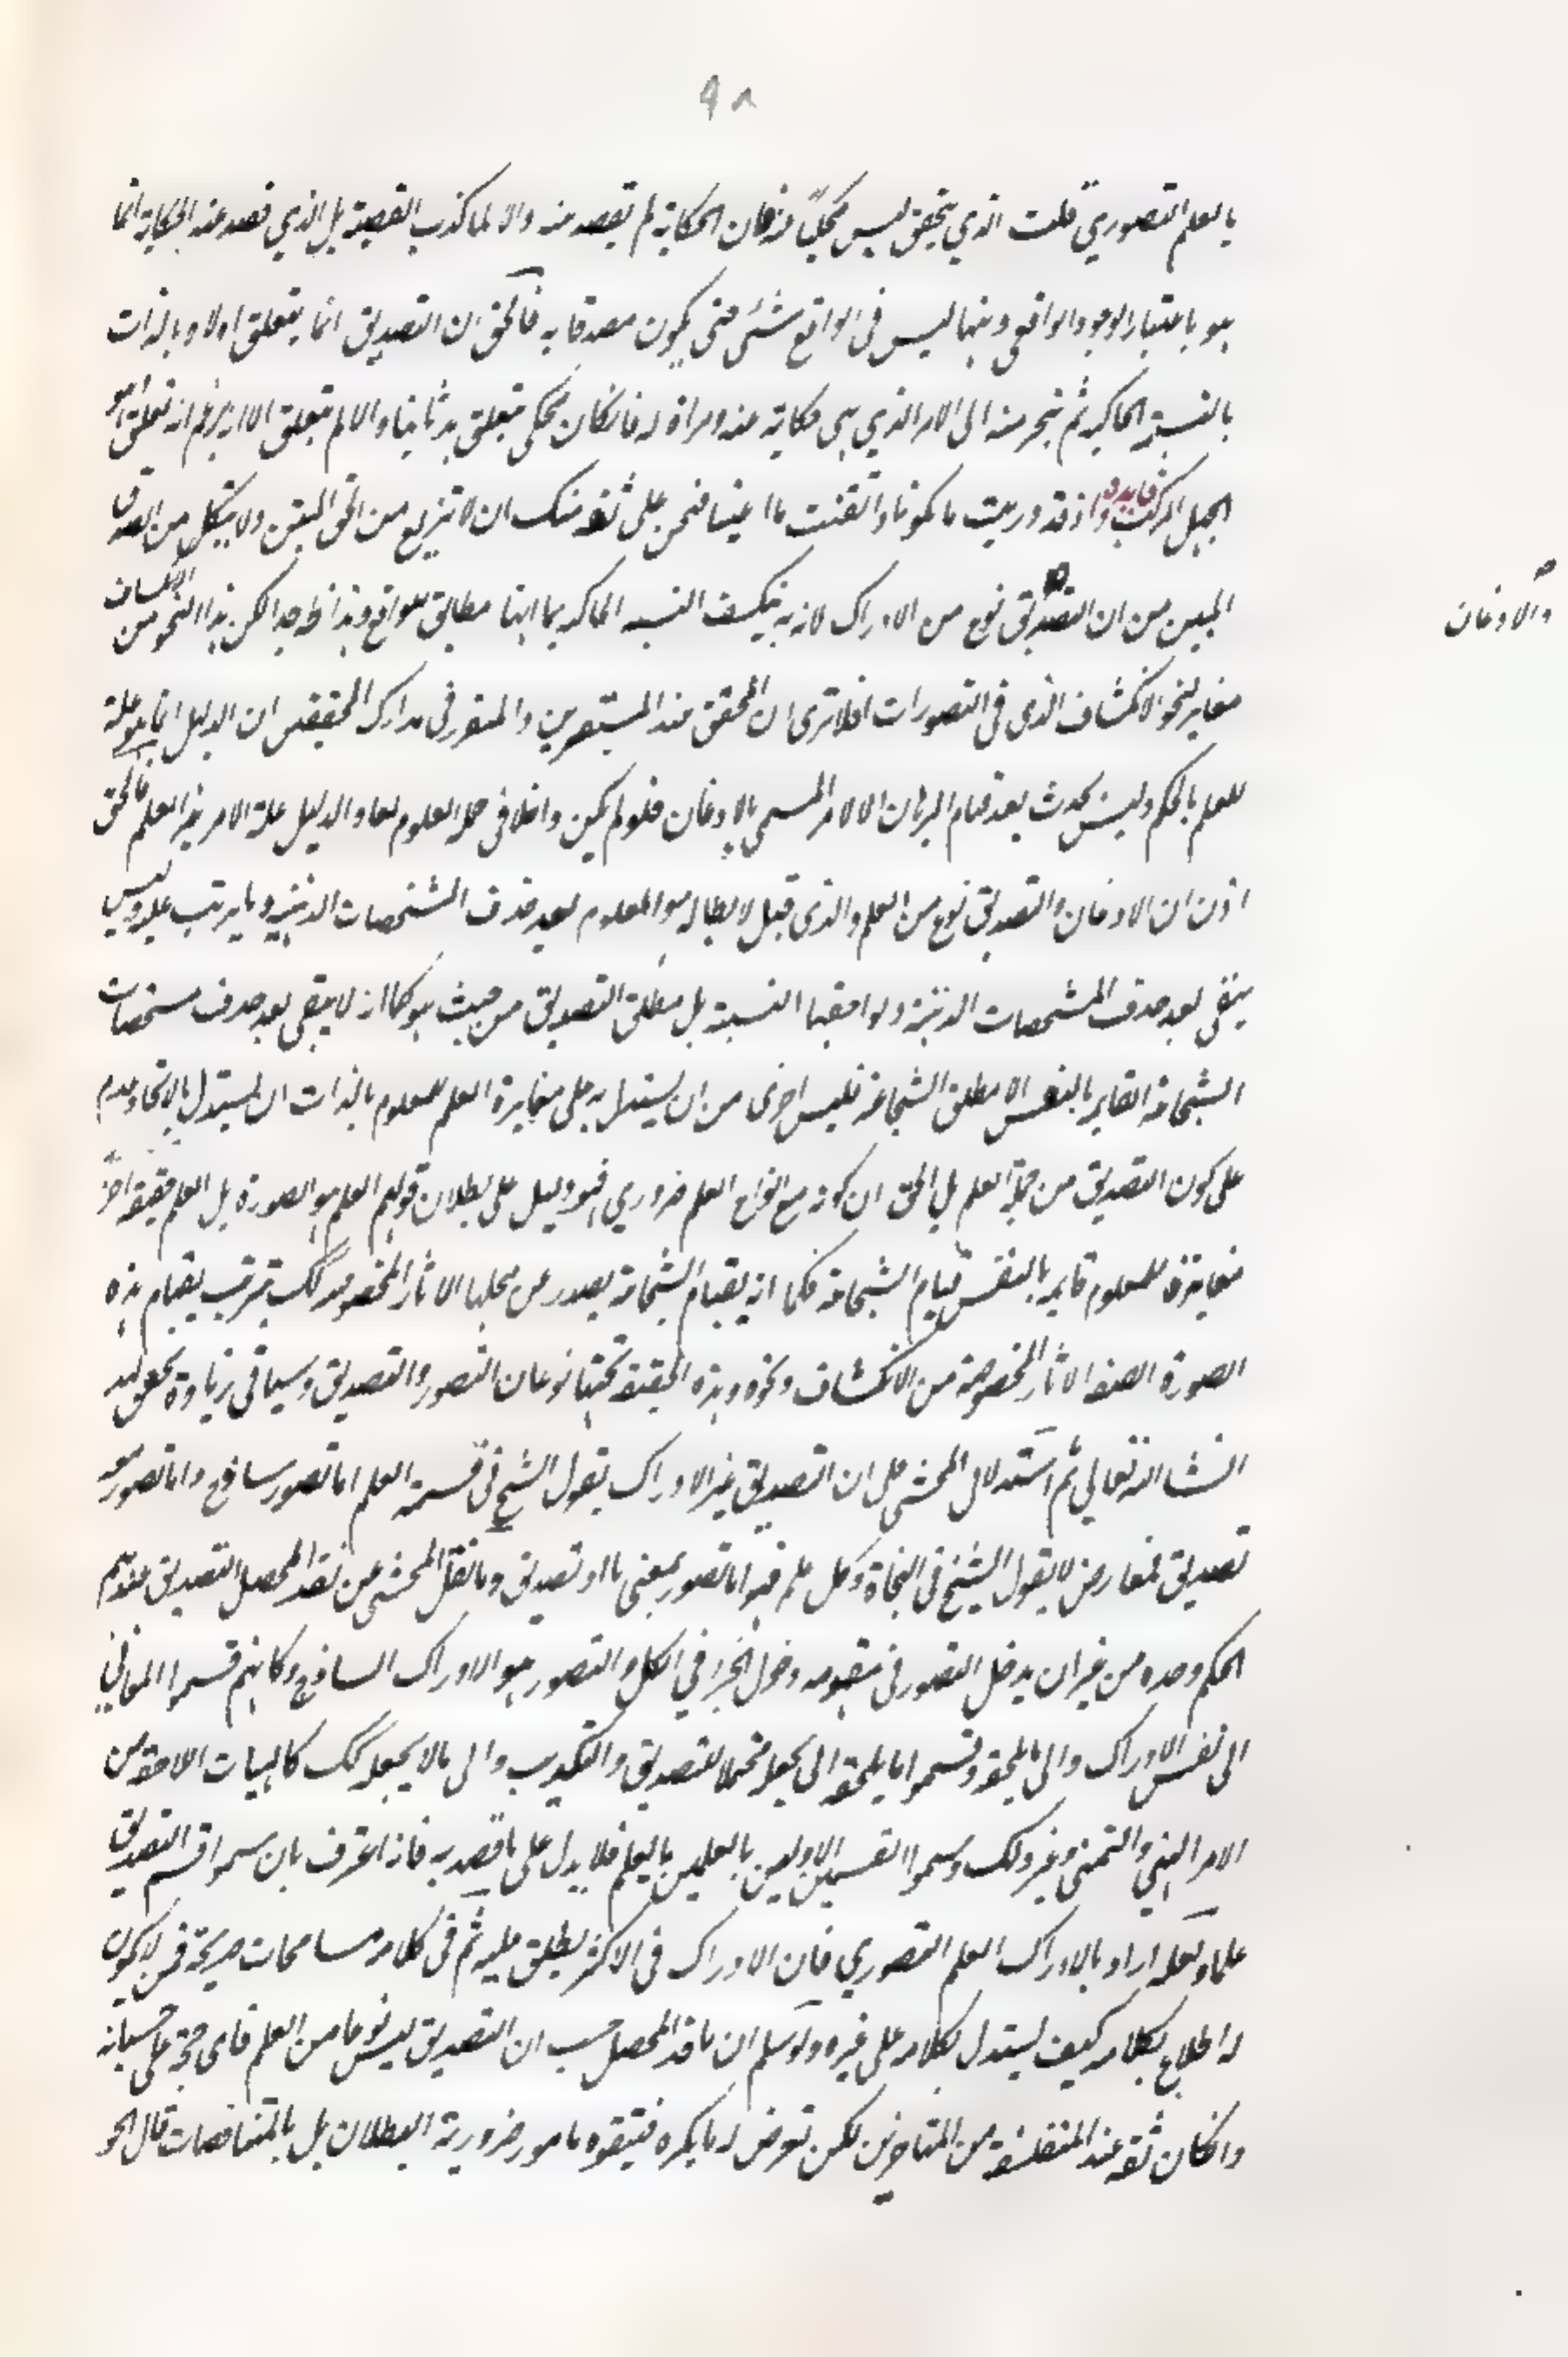 ٩٨
بالعلم التصوري قلت الذي يتحقق ليس محكيا عنه فان الحكاية لم تقصد منه والا لما كذب القضية بل الذي قصد عنه الحكاية انما
هو باعتبار الوجود الواقعي وههنا ليس في الواقع شئ حتى يكون مصدقا به فالحق ان التصديق انما يتعلق اولا وبالذات
بالنسبة الحاكية ثم ينجر منه الى الامر الذي هي حكاية عنه ومراة له فان كان محكي يتعلق به ثانيا والا لم يتعلق الا انه يزعم انه تعلق
الجهل المركب واذ قد دريت ما تلونا واتقنت ما القينا فنحن على ثقة منك ان لا تزيغ من الحق اليقين ولا من الصدق
المبين من ان التصديق نوع من الادراك لانه به ينكشف النسبة الحاكية بما انها مطابق للواقع وهذا ظ جدا لكن هذا النحو من الانكشاف
والاذعان
مغاير لنحو الانكشاف الذي في التصورات افلا ترى ان المحقق عند المستبصرين والمقرر في مدارك المحققين ان الدليل انما هو علة
للعلم بالحكم وليس يحدث بعد قيام البرهان الا الامر المسمى بالاذعان فلو لم يكن داخلا في جملة العلوم لعاد الدليل علة لامر غير العلم فالحق
اذن ان الاذعان والتصديق نوع من العلم والذي قيل لابطاله هو المعلوم بعد حذف المشخصات الذهنية وما يترتب عليه وليس
يبقى بعد حذف المشخصات الذهنية ولواحقها النسبة بل مطلق التصديق من حيث هو كما انه لا يبقى بعد حذف مشخصات
الشجاعة القايمة بالنفس الا مطلق الشجاعة فليس احرى من ان يستدل به على مغايرة العلم للمعلوم بالذات ان يستدل بالاتحاد وعدم
على كون التصديق من جملة العلم بل الحق ان كونه مع انواع العلم ضروري فهو دليل على بطلان قولهم العلم هو الصورة بل العلم حقيقة اخرى
مغايرة للمعلوم قايمة بالنفس قيام الشجاعة فكما انه بقيام الشجاعة يصدر عن محلها الاثار المخصوصة كذلك يترتب بقيام هذه
الصورة الصفة الاثار المخصوصة من الانكشاف ونحوه وهذه الحقيقة تحتها نوعان التصور والتصديق وسياتي زيادة تحقيق لهذا
انشاء الله تعالى ثم استدلال المحشي على ان التصديق غير الادراك بقول الشيخ في قسمة العلم اما تصور ساذج واما تصور معه
تصديق فمعارض لا بقول الشيخ في النجاة وكل علم فهو اما تصور بمعنى ما او تصديق وما نقل المحشي عن نقد المحصل التصديق عندهم
الحكم وحده من غير ان يدخل التصور في مفهومه دخول الجزء في الكل والتصور هو الادراك الساذج وكانهم قسموا المعاني
الى نفس الادراك والى ما يلحقه وقسموا ما يلحقه الى ما يجعله محتملا للتصديق والتكذيب والى ما لا يجعله كذلك كالهيات اللاحقة من
الامر والنهي والتمني وغير ذلك وسموا القسمين الاولين بالعلمين بالعلم فلا يدل على ما قصد به فانه اعترف بان سموا قسم التصديق
علما ولعله اراد بالادراك العلم التصوري فان الادراك في الاكثر يطلق عليه ثم في كلامه مسامحات صريحة فمن لا يكون
له اطلاع بكلامه كيف يستدل بكلامه على غيره ولو سلم ان ناقد المحصل حسب ان التصديق ليس نوعا من العلم فاي حجة على حسبانه
وان كان ثقة عند المتفلسفة من المتاخرين لكن تعرض له ما يكره فيتفوه بامور ضرورية البطلان بل بالمتناقضات قال المح